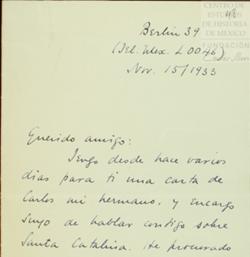 CENTRO
DE ESTUDIOS
DE HISTORIA
DE MEXICO
FUNDACIÓN
Berlin 39
(Tel. Alex. L 0046)
Nov. 15/1933
Querido amigo:
Tengo desde hace varios
días para ti una carta de
Carlos mi hermano, y encargo
suyo de hablar contigo sobre
Santa Catalina. He procurado